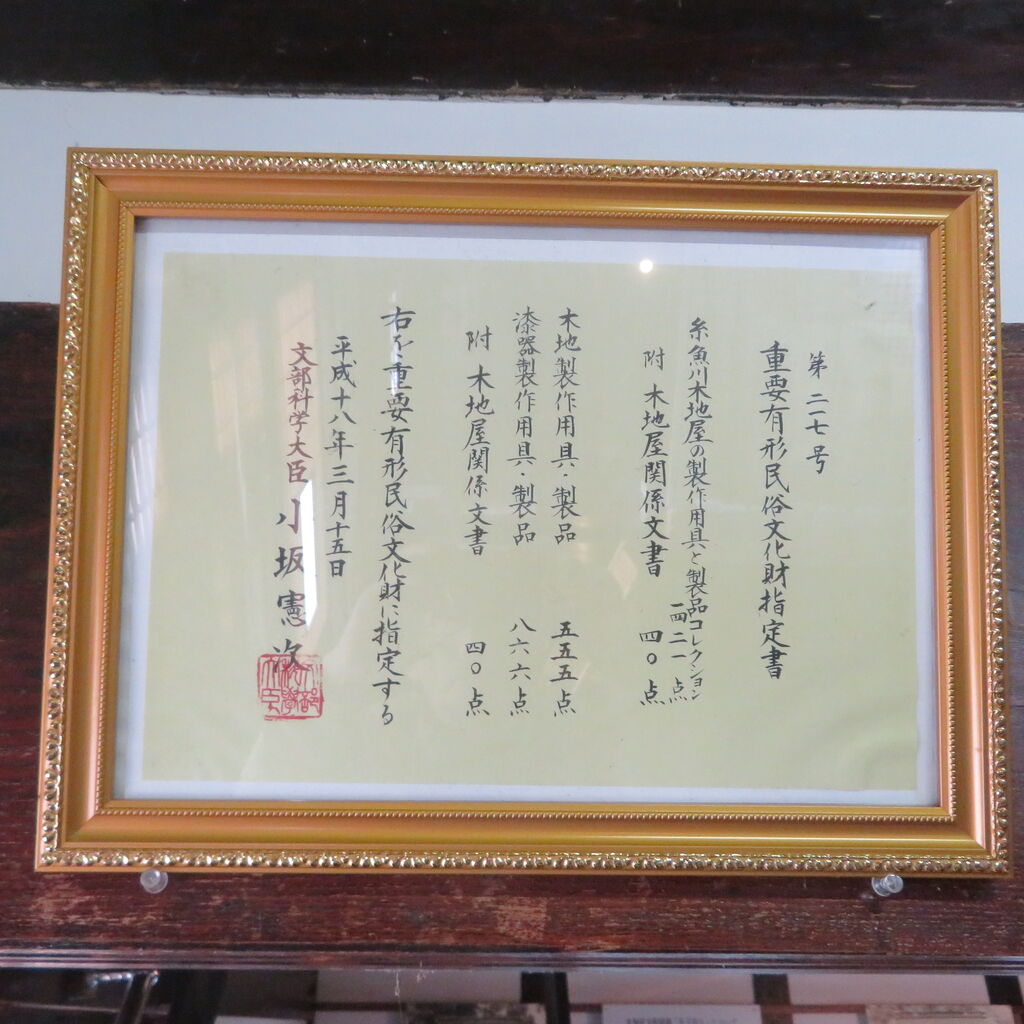 第二一七号
重要有形民俗文化財指定書
糸魚川木地屋の製作用具と製品コレクション
一四二一点
附 木地屋関係文書 四〇点
木地製作用具・製品 五五五点
漆器製作用具・製品 八六六点
附 木地屋関係文書 四〇点
右を重要有形民俗文化財に指定する
平成十八年三月十五日
文部科学大臣 小坂憲次